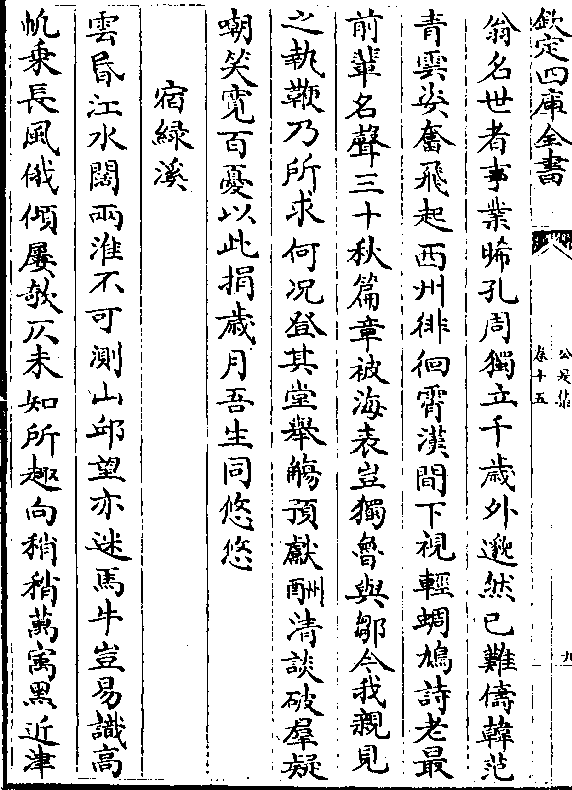 欽定四庫全書
公是集
卷十五
九
翁名世者事業晞孔周獨立千歲外邈然已難儔韓范
青雲姿奮飛起西州徘徊霄漢間下視輕蜩鳩詩老最
前輩名聲三十秋篇章被海表豈獨魯與鄒今我親見
之執鞭乃所求何况登其堂舉觴預獻酬清談破羣疑
嘲笑寛百憂以此捐歲月吾生同悠悠
宿緑溪
雲昏江水闊兩淮不可測山郊望亦迷馬牛豈易識高
帆乗長風俄傾屢欹仄未知所趣向稍稍萬寓黑近津